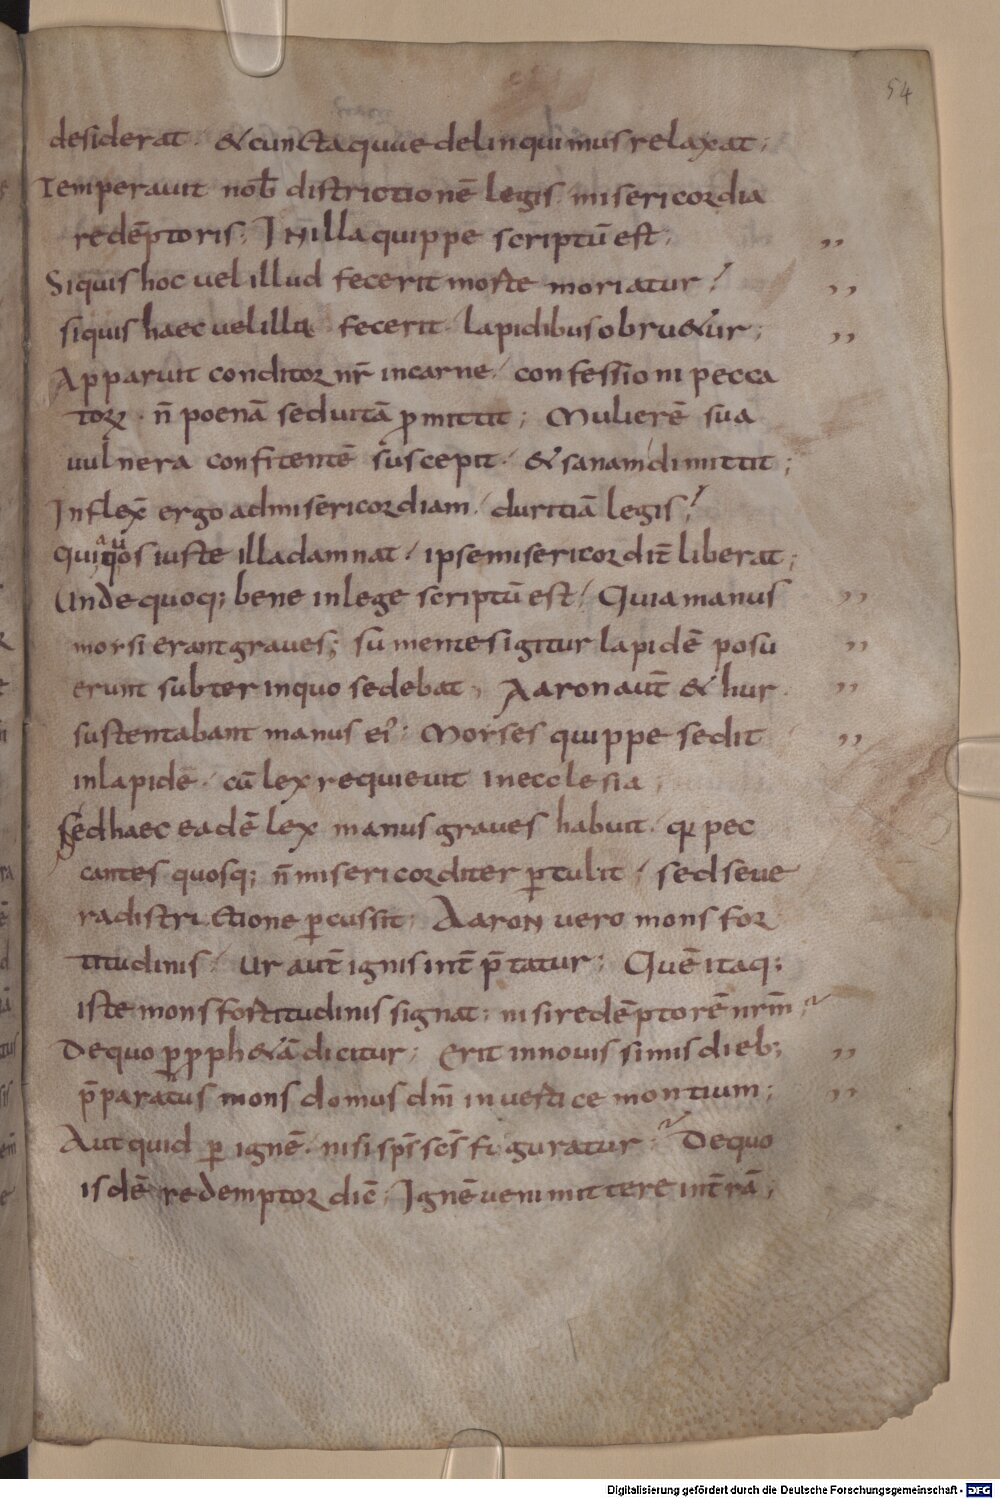 54
desiderat · & cuncta quae delinquimus relaxat ;
Temperavit nob̄ districtionē legis misericordia
redēptoris ; In illa quippe scriptū est , ,,
Siquis hoc vel illud fecerit morte moriatur ! ,,
siquis haec vel illa fecerit lapidibus obru&ur ; ,,
Apparuit conditor nr̄ in carne / confessioni pecca
torꝝ · n̄ poenā sed uitā ꝓmittit ; Mulierē sua
uulnera confitentē suscepit · & sanam dimittit ;
Inflex̄ ergo ad misericordiam / duritiā legis !
Quia quos iuste illa damnat / ipse misericordit̄ liberat ;
Unde quoq; bene in lege scriptū est / Quia manus ,,
morsi erant graves ; sumentes igitur lapidē posu ,,
erunt subter in quo sedebat ; Aaron aut̄ & hur ,,
sustentabant manus ei' ; Morses quippe sedit ,,
in lapidē / cū lex requievit in ecclesia ;
Sed haec eadē lex manus graves habuit · qꝛ pec
cantes quosq; n̄ misericorditer ꝑtulit / sed seve
ra districtione ꝑcussit ; Aaron vero mons for
titudinis / ur aut̄ ignis int̄p̄tatur ; Quē itaq;
iste mons fortitudinis signat ; nisi redēptorē nrm̄
De quo ꝑ ꝓph&ā dicitur ; Erit in novissimis dieb; ,,
p̄paratus mons domus dnī in vertice montium ; ,,
Aut quid ꝑ ignē · nisi sps̄ scs̄ figuratur De quo
isdē redemptor dic̄ ; Ignē veni mittere in t̄rā ;
Digitalisierung gefördert durch die Deutsche Forschungsgemeinschaft - DFG